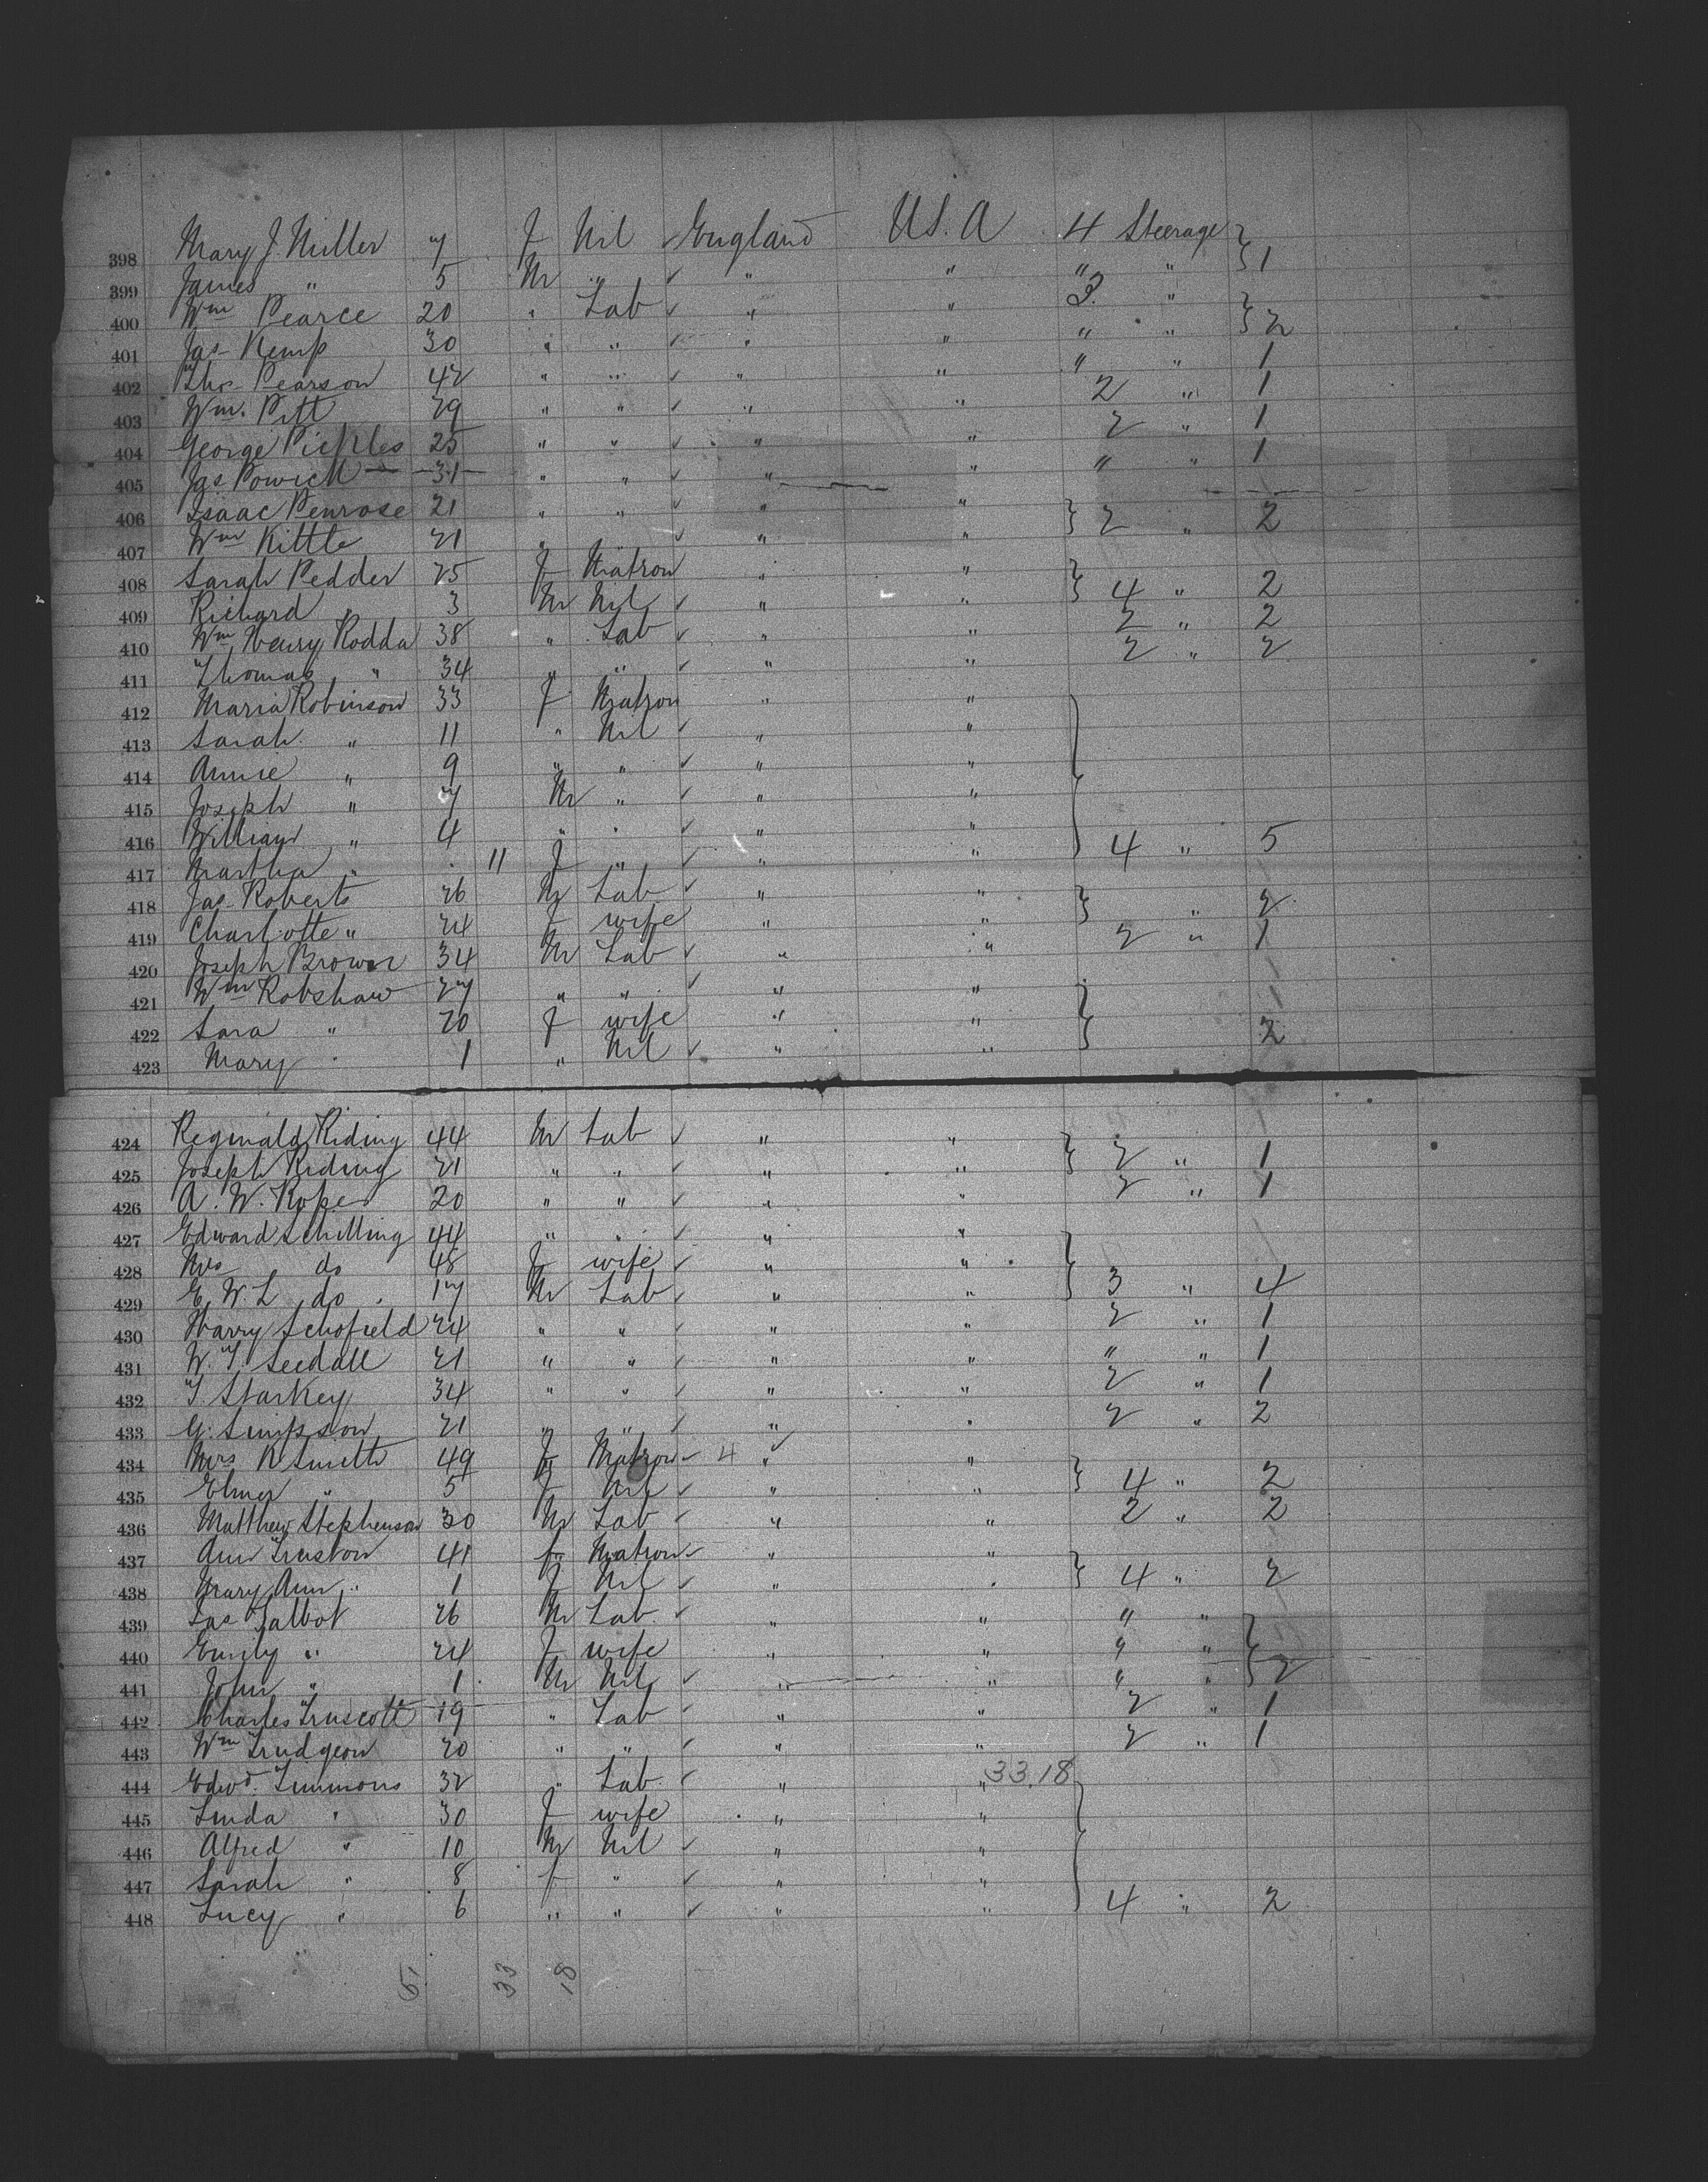 398 Mary J. Miller 7 f Nil ✓ England U.S.A 4 Steerage }
399 James " 5 M " ✓ " " " " } 1
400 Wm Pearce 20 " Lab ✓ " " 3. "
401 Jas Kemp 30 " " ✓ " " " " } 2
402 Tho- Pearson 42 " " ✓ " " " " 1
403 Wm. Pitt 29 " " ✓ " " 2 " 1
404 George Pickles 25 " " ✓ " " 2 " 1
405 Jas Powick 31 " " ✓ " " " " 1
406 Isaac Penrose 21 " " ✓ " "
407 Wm Kittle 21 " ✓ " " } 2 " 2
408 Sarah Pedder 25 f Matron " "
409 Richard " 3 M Nil ✓ " " } 4 " 2
410 Wm Henry Rodda 38 " Lab ✓ " " 2 " 2
411 Thomas " 34 " " ✓ " " 2 " 2
412 Maria Robinson 33 f Matron " "
413 Sarah " 11 " Nil ✓ " "
414 Annie " 9 " " ✓ " "
415 Joseph " 7 M " ✓ " "
416 William " 4 " " ✓ " "
417 Martha " 11 f " ✓ " " } 4 " 5
418 Jas Roberts 26 M Lab ✓ " "
419 Charlotte " 24 f wife " " } " 2
420 Joseph Brown 34 M Lab ✓ " " 2 " 1
421 Wm Robshaw 27 " " ✓ " "
422 Sara " 20 f wife " "
423 Mary " 1 " Nil ✓ " " } 2
424 Reginald Riding 44 M Lab ✓ " "
425 Joseph Riding 21 " " ✓ " " } 2 " 1
426 A. W. Roper 20 " " ✓ " " 2 " 1
427 Edward Schilling 44 " " ✓ " "
428 Mrs do 48 f wife ✓ " "
429 E. W. L do 17 M Lab ✓ " " } 3 " 4
430 Harry Schofield 24 " " ✓ " " 2 " 1
431 W. T. Seedall 21 " " ✓ " " " " 1
432 T. Starkey 34 " " ✓ " " 2 " 1
433 G. Simpson 21 " " ✓ " " 2 " 2
434 Mrs R Smith 49 f Matron 4 ✓ " "
435 Elmer " 5 f Nil ✓ " " } 4 " 2
436 Matthew Stephenson 30 M Lab ✓ " " 2 " 2
437 Ann Truston 41 f Matron " "
438 Mary Ann " 1 f Nil ✓ " " } 4 " 2
439 Jas Talbot 26 M Lab ✓ " " " "
440 Emily " 24 f wife " " " "
441 John " 1 M Nil ✓ " " " " } 2
442 Charles Truscott 19 " Lab ✓ " " 2 " 1
443 Wm Trudgeon 20 " " ✓ " " 2 " 1
444 Edwd. Timmons 32 " Lab ✓ " " 33.18
445 Linda " 30 f wife " "
446 Alfred " 10 M Nil ✓ " "
447 Sarah " 8 f " ✓ " "
448 Lucy " 6 " " ✓ " " } 4 " 2
51 33 18